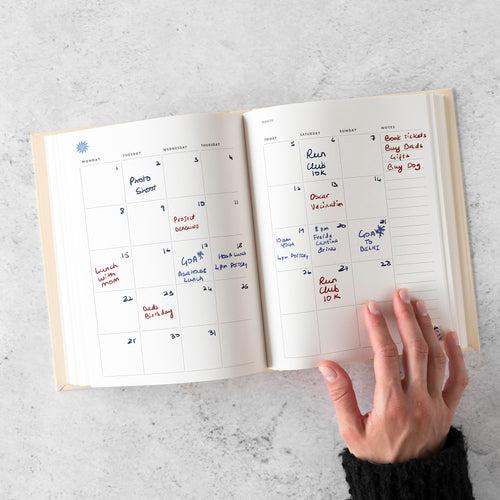 MONDAY TUESDAY WEDNESDAY THURSDAY
1 2 3 4
Photo
Shoot
8 9 10 11
Project
Deadline
15 16 17 18
Lunch
with
mom
GOA
Lunch
4pm Pottery
22 23 24 25
Dad's
Birthday
29 30 31
SATURDAY SUNDAY NOTES
5 6 7
Run
Club
10K
Book tickets
Buy Dad's
Gifts
Buy Dog
12 13 14
Oscar
Vaccination
19 20 21
10am
Yoga
4pm Pottery
8pm
Drinks
GOA
TO
DELHI
26 27 28
Run
Club
10K